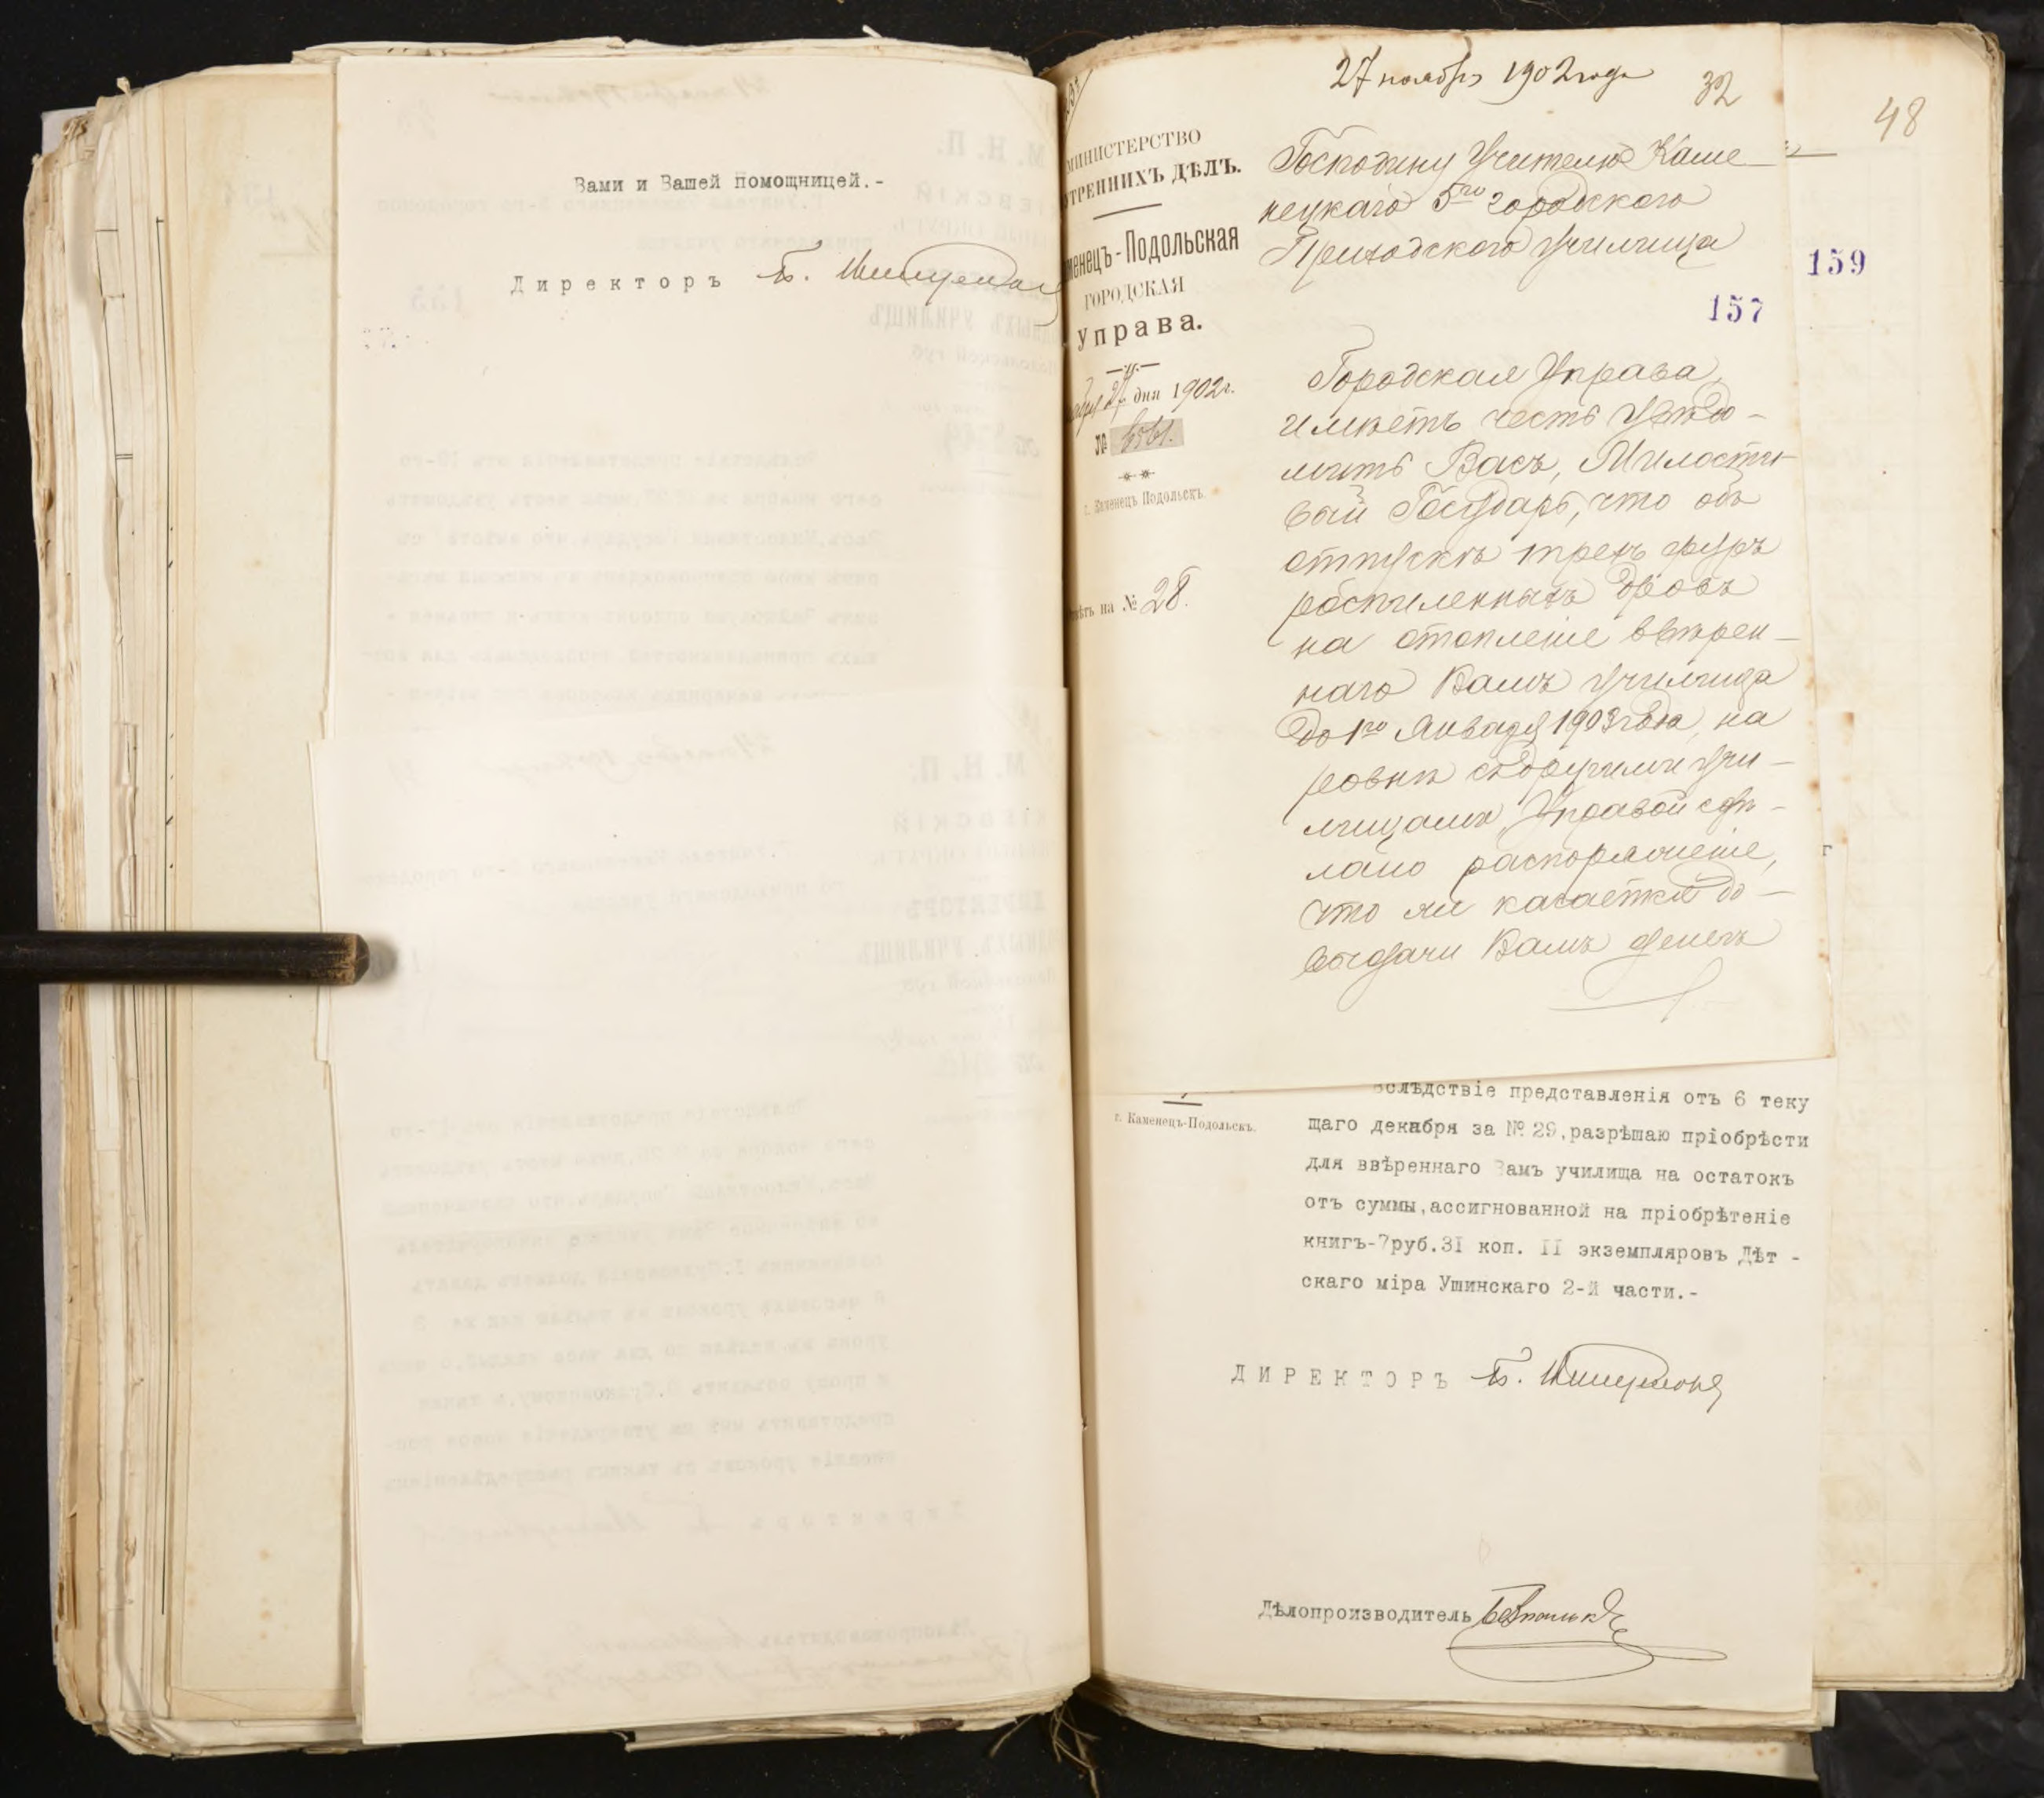 Вами и Вашей помощницей.-
Директоръ
27 ноября 1902 года
32
48
МИНИСТЕРСТВО
ТРЕННИХЪ ДѢЛЪ.
менецъ-Подольская
ГОРОДСКАЯ
Управа.
27 дня 1902 г.
№ 6561.
г. Каменецъ Подольскъ.
на № 28.
Господину Учителю Каме-
нецкаго 5го городского
Приходского училища
159
157
Городская Управа,
имѣетъ честь увѣдо-
мить Васъ, Милости-
вый Государь, что объ
отпускѣ трехъ фуръ
распиленныхъ дровъ
на отопленіе ввѣрен-
наго Вамъ училища
до 1го Января 1903 года, на
ровнѣ съ другими учи-
лищами, Управой сдѣ-
лано распоряженіе,
что же касается до-
выдачи Вамъ денегъ
вслѣдствіе представленія отъ 6 теку
г. Каменецъ-Подольскъ.
щаго декабря за № 29,разрѣшаю пріобрѣсти
для ввѣреннаго Вамъ училища на остатокъ
отъ суммы,ассигнованной на пріобрѣтеніе
книгъ-7руб.31 коп. II экземпляровъ Дѣт -
скаго міра Ушинскаго 2-й части.-
ДИРЕКТОРЪ
Дѣлопроизводитель